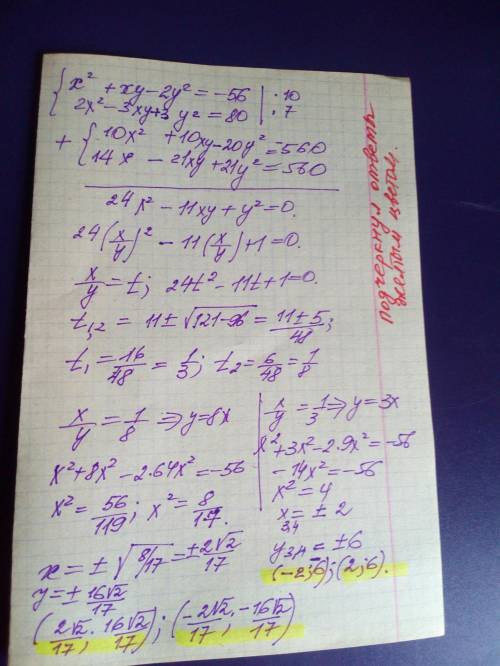 x² + xy - 2y² = -56 | · 10
2x² - 3xy + 3y² = 80 | · 7
+ { 10x² + 10xy - 20y² = -560
14x² - 21xy + 21y² = 560
24x² - 11xy + y² = 0.
24(x/y)² - 11(x/y) + 1 = 0.
x/y = t; 24t² - 11t + 1 = 0.
t₁,₂ = 11 ± √121-96 = 11±5/48;
t₁ = 16/48 = 1/3; t₂ = 6/48 = 1/8
x/y = 1/8 ⇒ y = 8x
x² + 8x² - 2·64x² = -56
x² = 56/119; x² = 8/17.
x = ± √8/17 = ±2√2/17
y = ± 16√2/17
(2√2/17; 16√2/17); (-2√2/17; -16√2/17)
x/y = 1/3 ⇒ y = 3x
x² + 3x² - 2·9x² = -56
-14x² = -56
x² = 4
x₃,₄ = ± 2
y₃,₄ = ±6
(-2;6); (2;6).
подчеркнул ответы
желтым цветом.